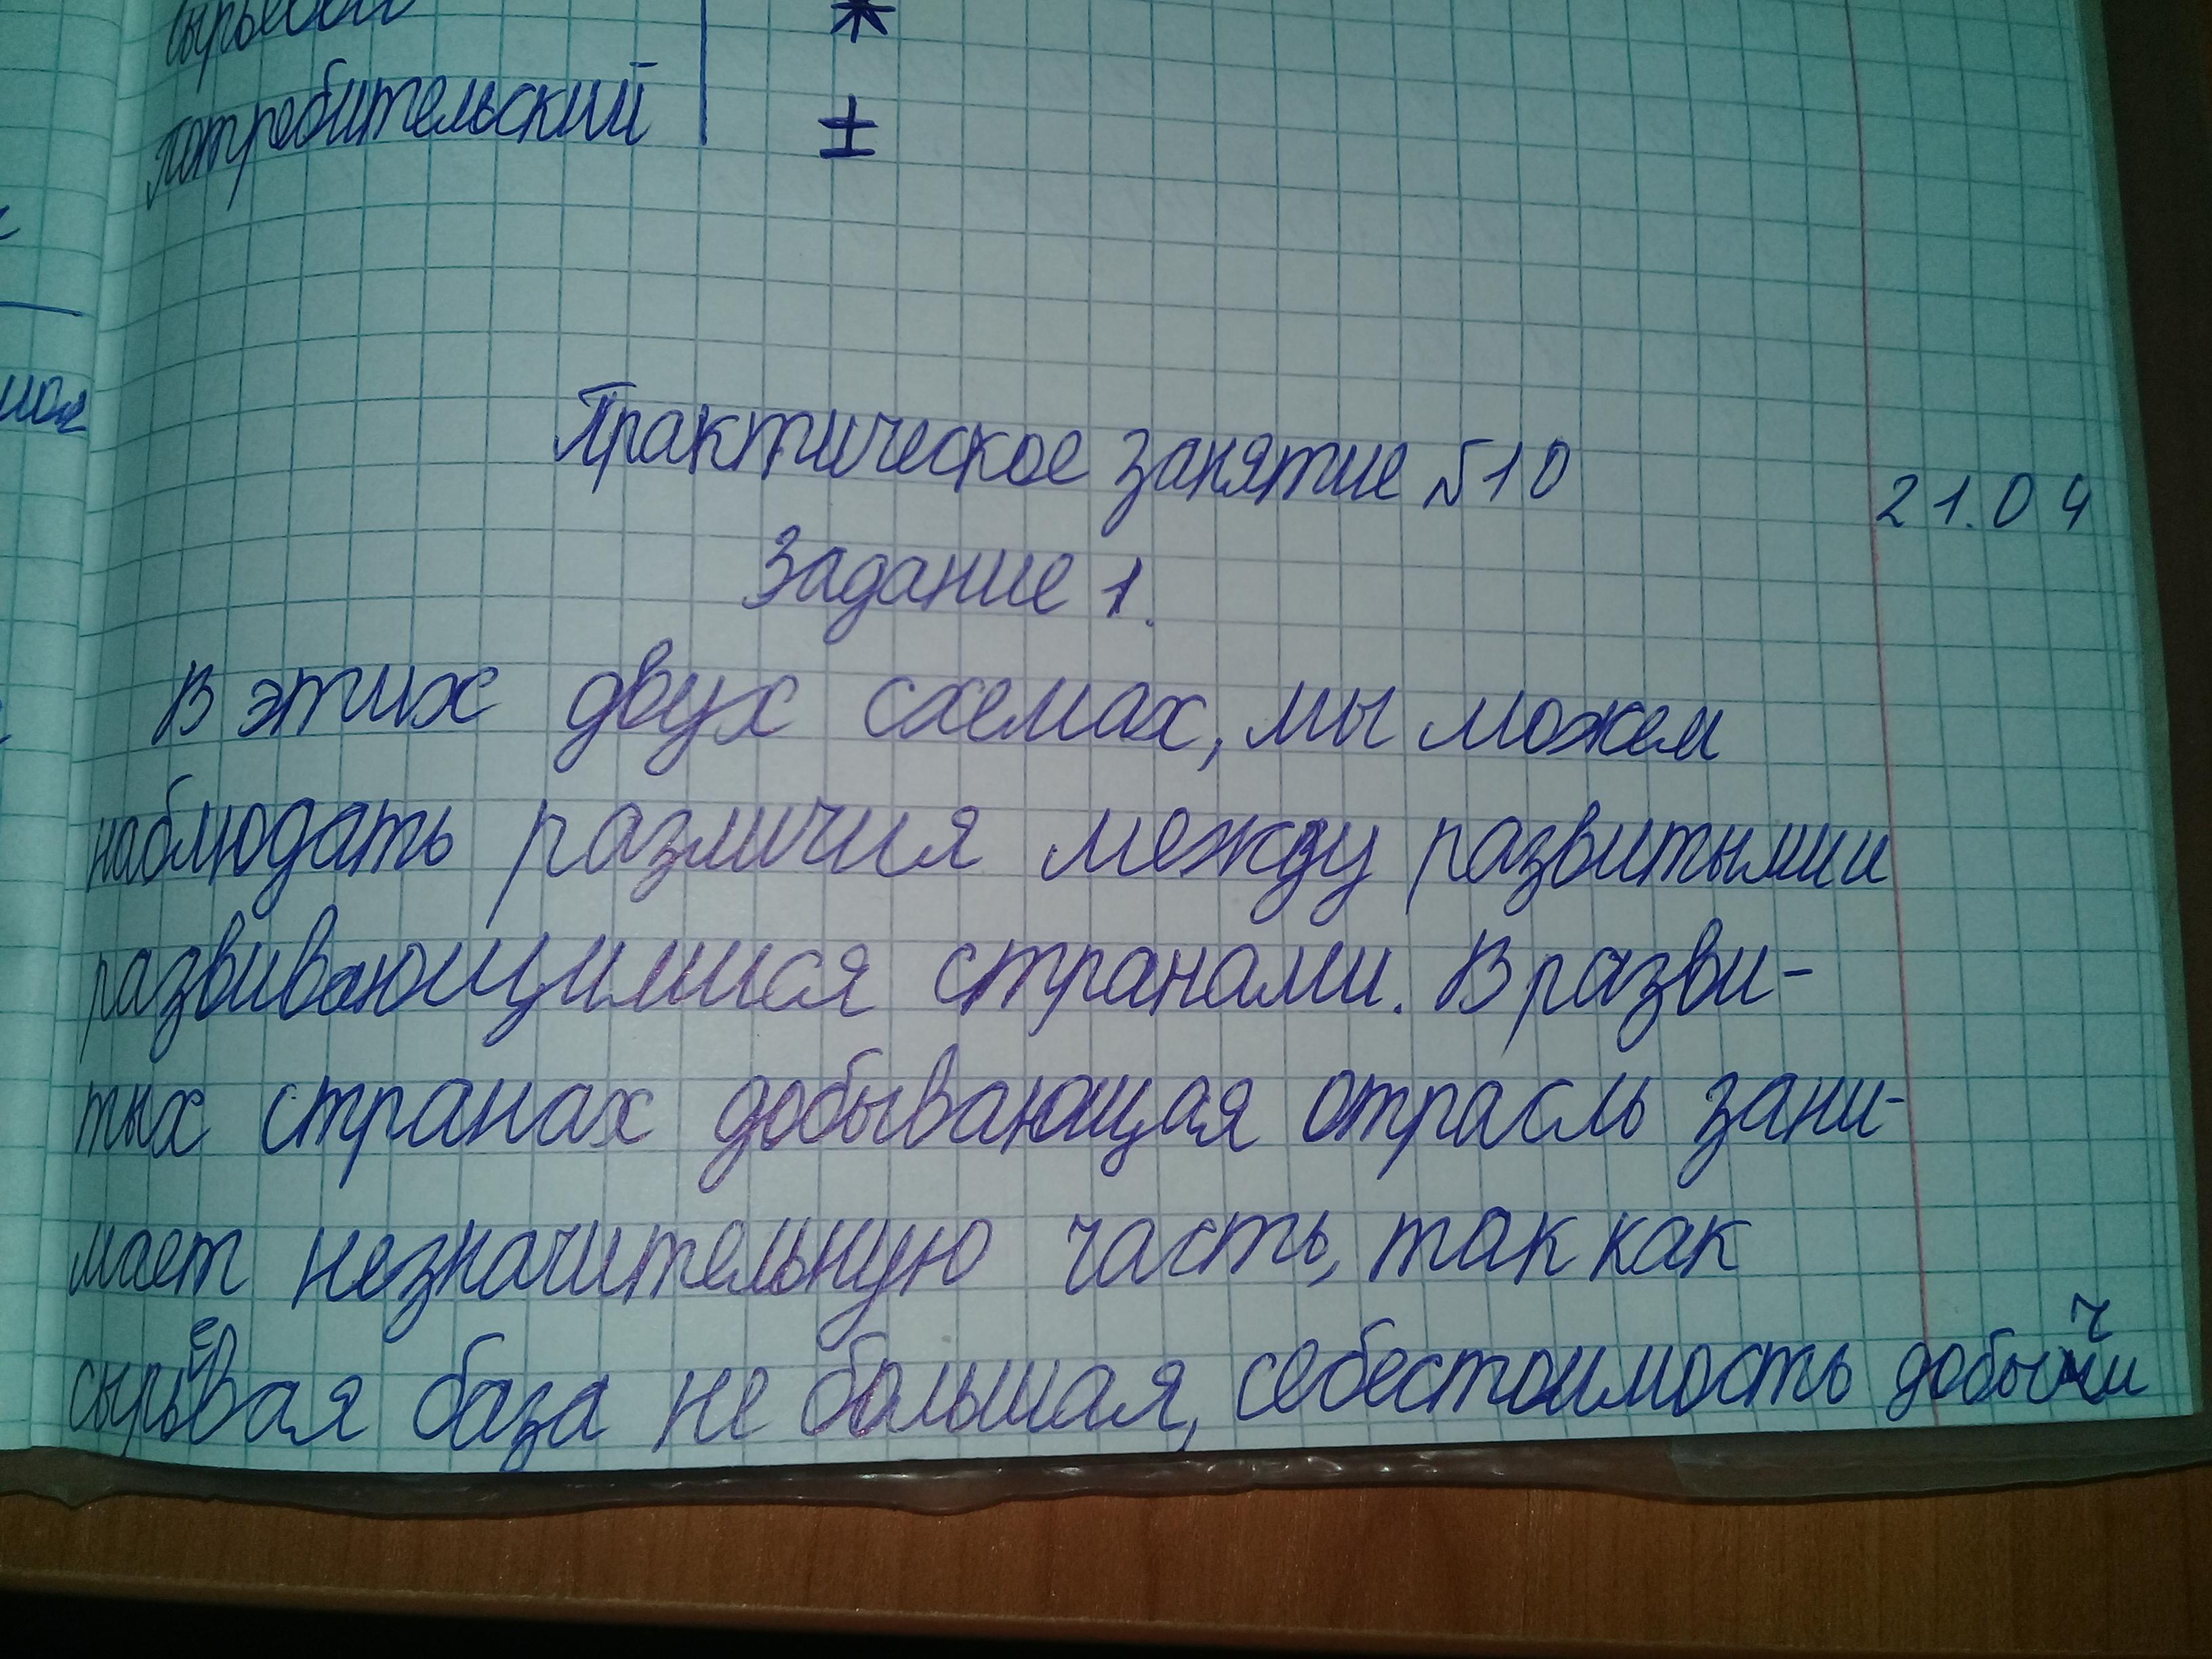 сырьевой *
потребительский ±
Практическое занятие №10 21.04
Задание 1.
В этих двух схемах, мы можем
наблюдать различия между развитыми и
развивающимися странами. В разви-
тых странах добывающая отрасль зани-
мает незначительную часть, так как
сырьевая база не большая, себестоимость добычи